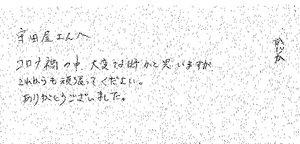 守田屋さんへ
コロナ禍の中、大変な時かと思いますが
これからも頑張ってくださいo
ありがとうございました。
かじか